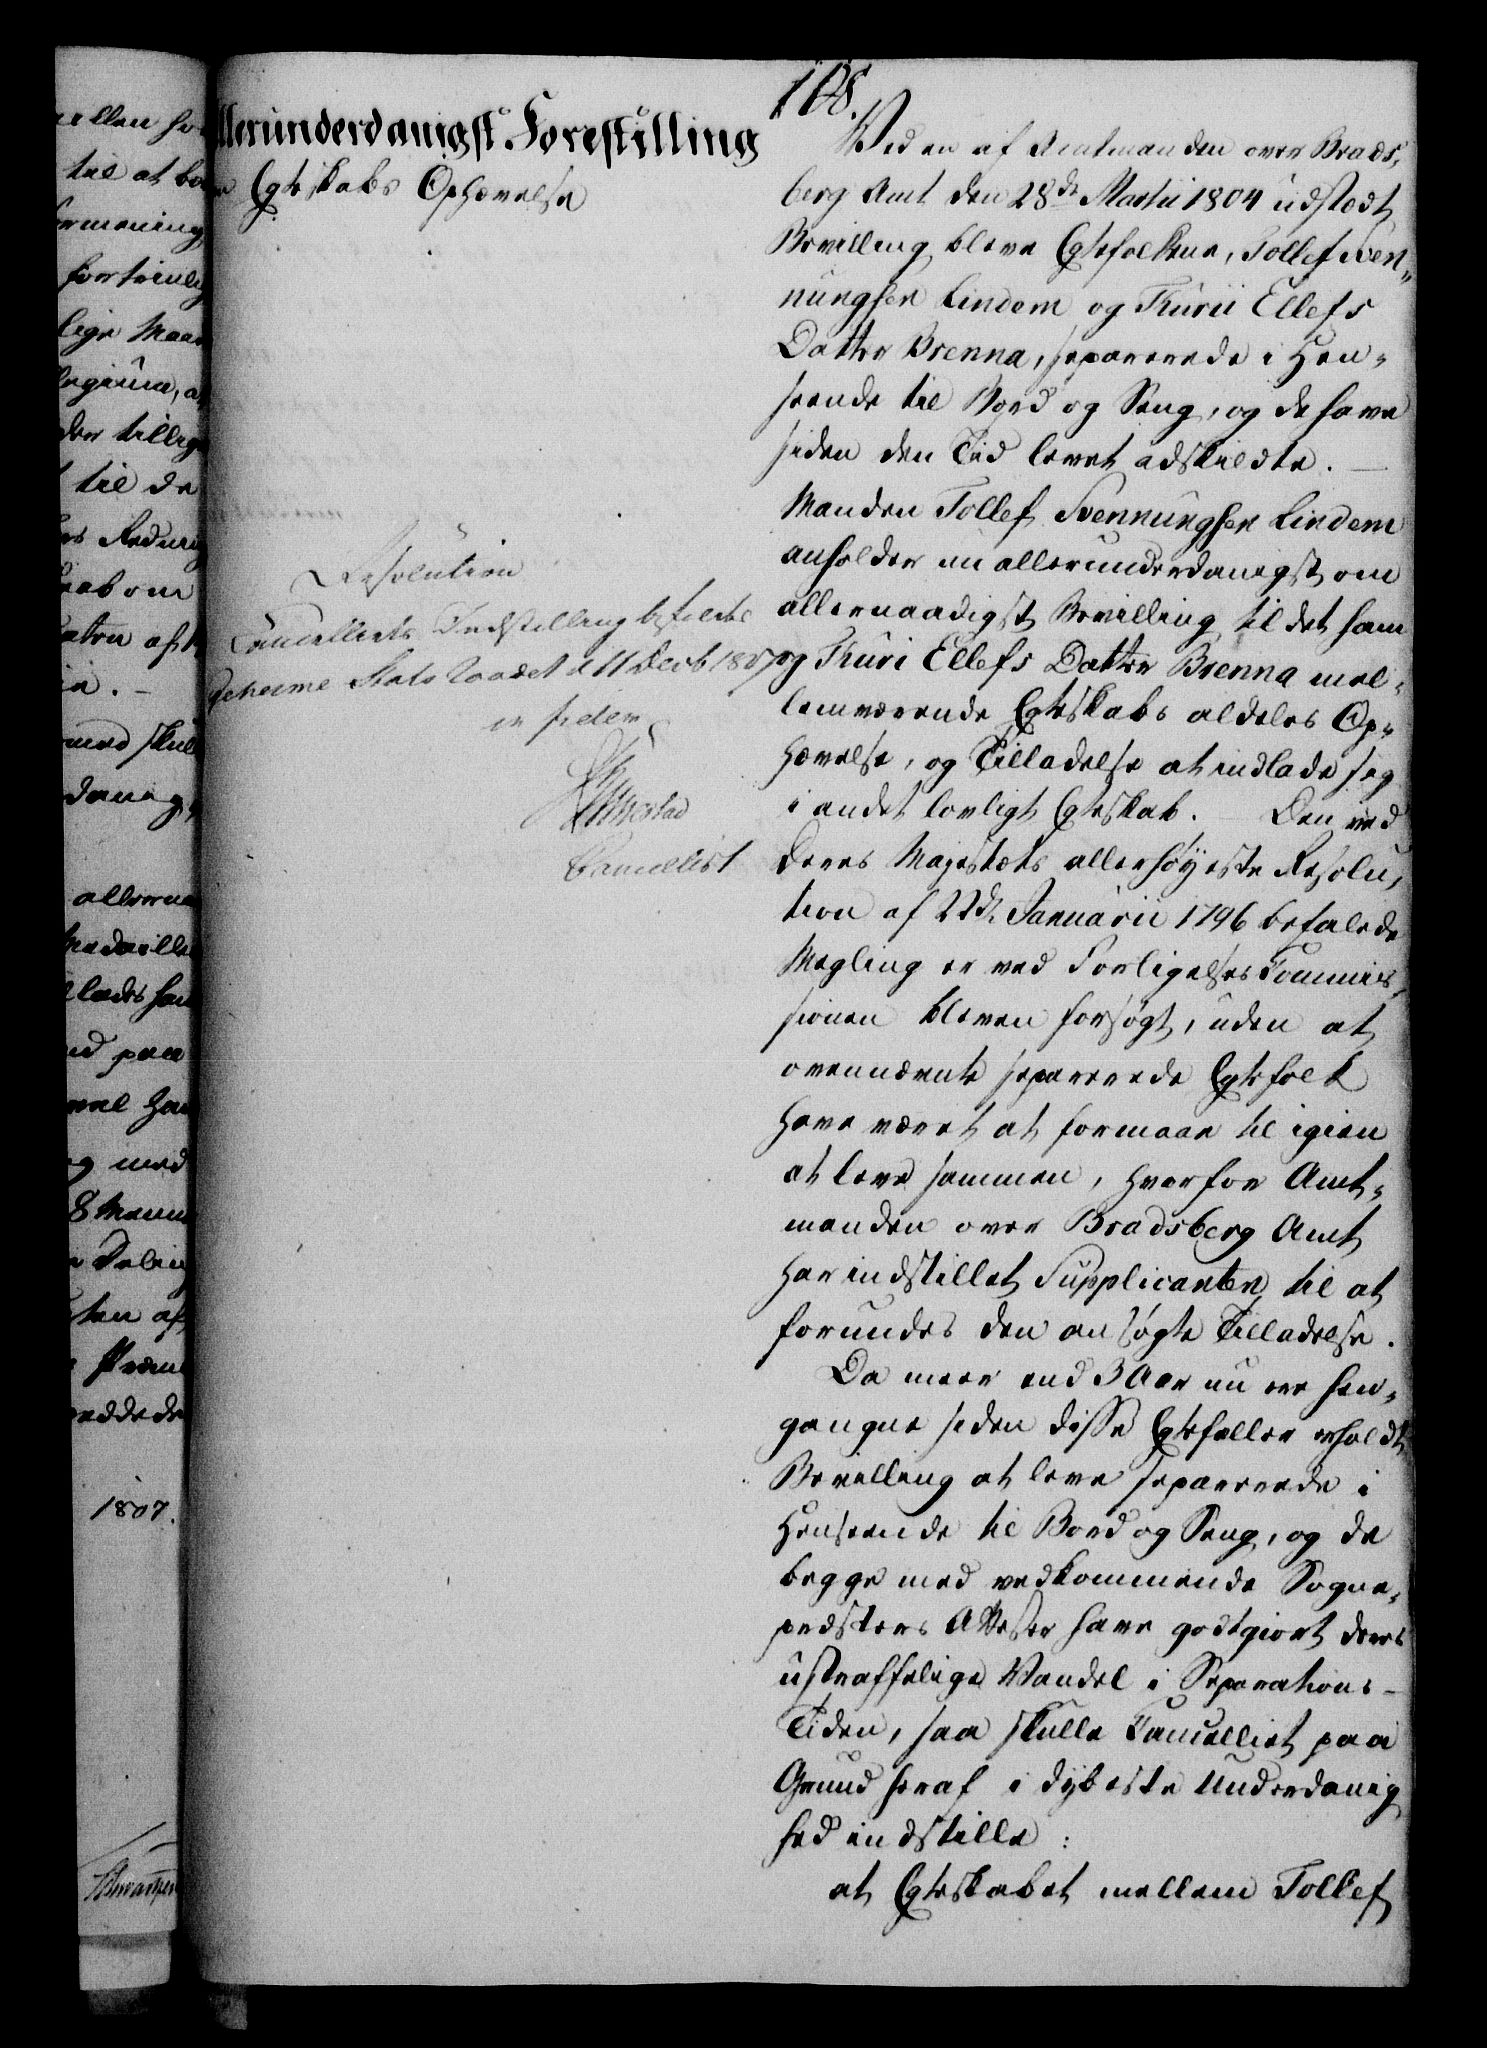 108.
llerunderdanigst Forestilling
Egteskabs Ophævelse
Ved en af Amtmanden over Brads-
berg Amt den 28de Martii 1804 udstædt
Bevilling bleve Egtefolkene, Tollef Sven-
nungsen Lindem og Thurii Ellefs
Datter Brenna, separerede i Hen-
seende til Bord og Seng, og de have
siden den Tiid levet adskildte. —
Manden Tollef Svennungsen Lindem
anholder nu allerunderdanigst om
allernaadigst Bevilling til det ham
og Thuri Ellefs Datter Brenna mel-
lemværende Egteskabs aldeles Op-
hævelse, og Tilladelse at indlade sig
i andet lovligt Egteskab. — Den ved
Deres Majestæts allerhøyeste Resolu-
tion af 22de Januarii 1796 befalede
Megling er ved Forligelses Commis-
sionen bleven forsøgt, uden at
ovennævnte separerede Egtefolk
have været at formaae til igien
at leve sammen, hvorfor Amt-
manden over Bradsberg Amt
har indstillet Supplicanten til at
forundes den ansøgte Tilladelse.
Da meer end 3 Aar nu ere hen-
gangne siden disse Egtefæller erholdt
Bevilling at leve separerede i
Henseende til Bord og Seng, og de
begge med vedkommende Sogne-
præsters Attester have godtgiort deres
ustraffelige Vandel i Separations-
Tiden, saa skulle Cancelliet paa
Grund heraf i dybeste Underdanig
hed indstille:
at Egteskabet mellem Tollef
Resolution
Cancelliets Indstilling bifaldes
Geheime Stats Raadet d 11 Decb 1807
in fidem
Cancellist
ellen
til at
rmening
fortrinlig
lige Maa
legium, a
der tillige
til de
om
af
ia. —
med skul
danig
allerna
Medaille
paa
vel
og med
8
ten af
1807.